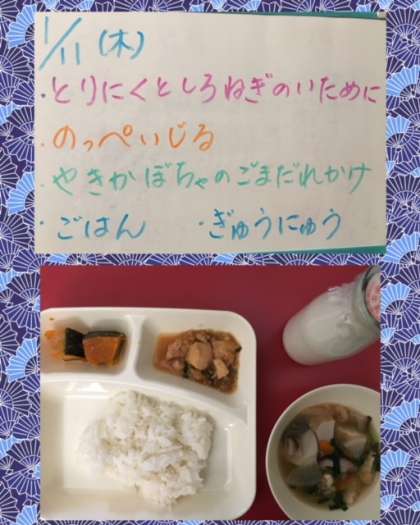 1/11(木)
・とりにくとしろねぎのいために
・のっぺいじる
・やきかぼちゃのごまだれかけ
・ごはん ・ぎゅうにゅう